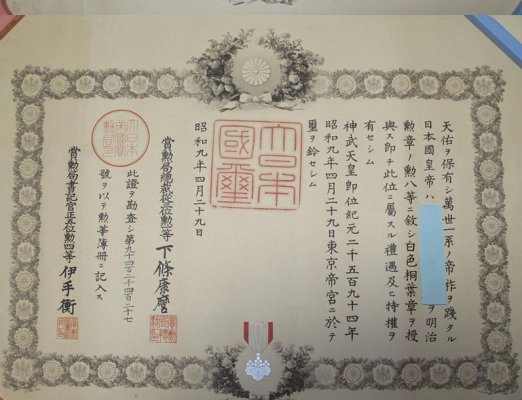 天佑ヲ保有シ萬世一系ノ帝祚ヲ踐タル
日本國皇帝ハ
ヲ明治
勲章ノ勲八等ニ敍シ白色桐葉章ヲ授
與ス即チ此位ニ屬スル禮遇及ヒ特權ヲ
有セシム
神武天皇即位紀元二千五百九十四年
昭和九年四月二十九日東京帝宮ニ於テ
璽ヲ鈐セシム
大日本
國璽
昭和九年四月二十九日
賞勲局總裁從三位勲一等下條康麿
此證ヲ勘査シ第九十四万二千四百二十七
號ヲ以テ勲等簿冊ニ記入ス
賞勲局書記官正五位勲四等伊手衡